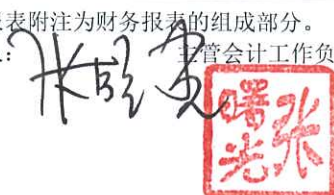 表附注为财务报表的组成部分。
主管会计工作负
张曙光
张曙光